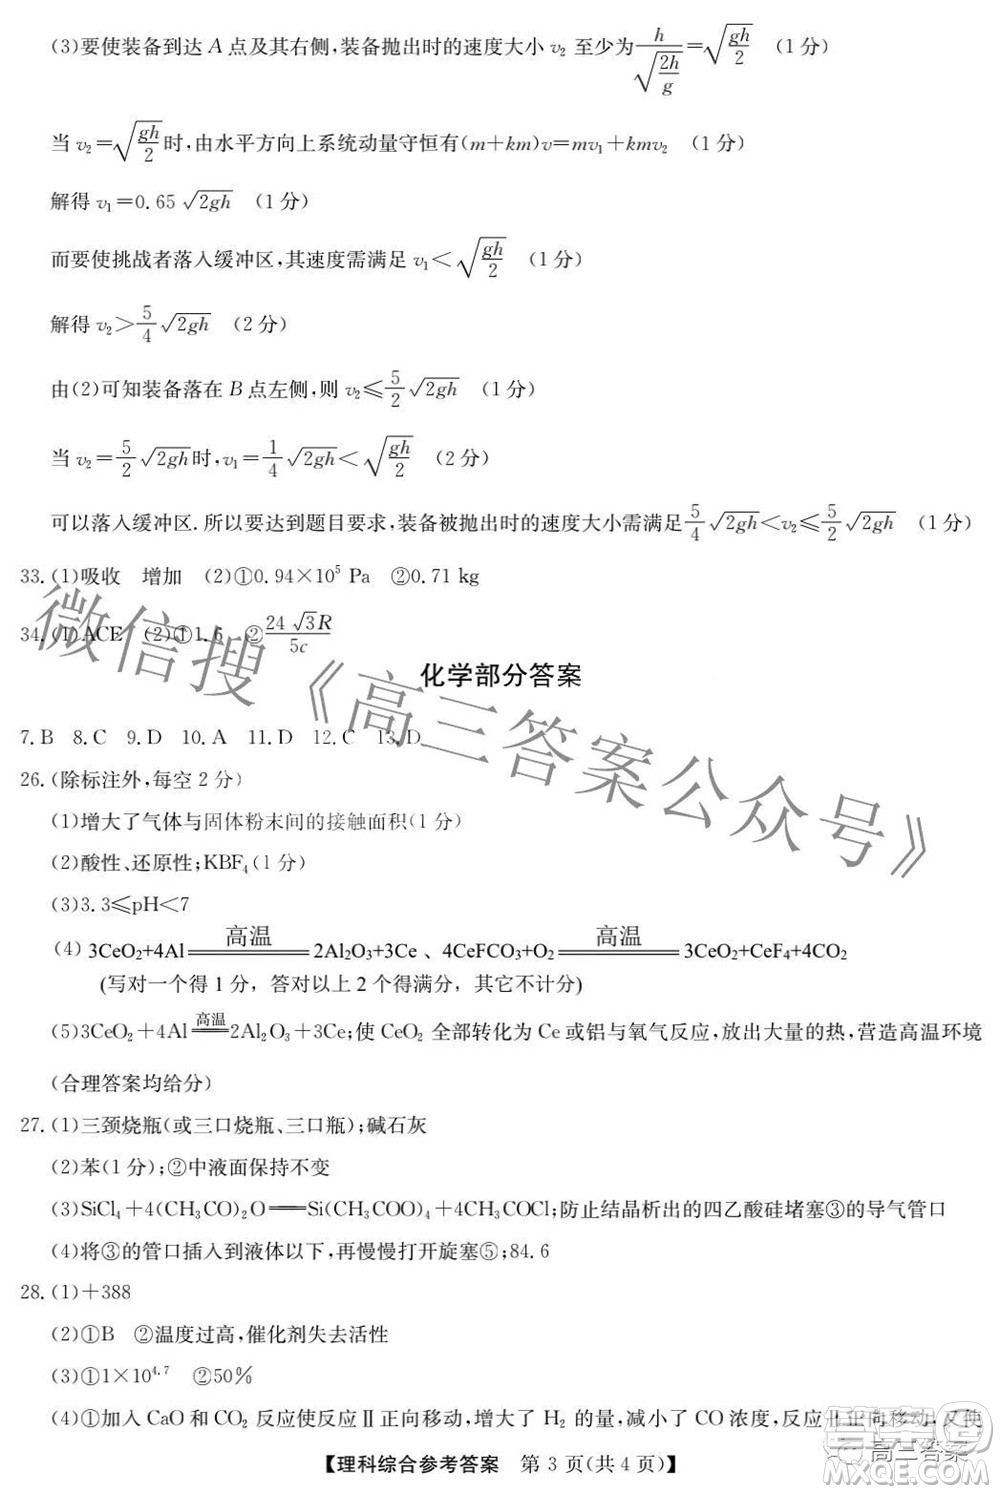 (3)要使装备到达 A 点及其右侧,装备抛出时的速度大小 v₂ 至少为 h/√(2h/g)=√(gh/2) (1 分)
当 v₂=√(gh/2)时,由水平方向上系统动量守恒有(m+km)v=mv₁+kmv₂ (1 分)
解得 v₁=0.65√(2gh) (1 分)
而要使挑战者落入缓冲区,其速度需满足 v₁<√(gh/2) (1 分)
解得 v₂>5/4√(2gh) (2 分)
由(2)可知装备落在 B 点左侧,则 v₂≤5/2√(2gh) (1 分)
当 v₂=5/2√(2gh)时,v₁=1/4√(2gh)<√(gh/2) (2 分)
可以落入缓冲区.所以要达到题目要求,装备被抛出时的速度大小需满足5/4√(2gh)<v₂≤5/2√(2gh) (1 分)
33.(1)吸收 增加 (2)①0.94×10⁵ Pa ②0.71 kg
34.(1)ACE (2)①1.6 ②24√3R/5c
化学部分答案
7.B 8.C 9.D 10.A 11.D 12.C 13.D
26.(除标注外,每空 2 分)
(1)增大了气体与固体粉末间的接触面积(1 分)
(2)酸性、还原性;KBF₄(1 分)
(3)3.3≤pH<7
(4) 3CeO₂+4Al =高温= 2Al₂O₃+3Ce 、4CeFCO₃+O₂ =高温= 3CeO₂+CeF₄+4CO₂
(写对一个得 1 分，答对以上 2 个得满分，其它不计分)
(5)3CeO₂+4Al =高温= 2Al₂O₃+3Ce;使 CeO₂ 全部转化为 Ce 或铝与氧气反应,放出大量的热,营造高温环境
(合理答案均给分)
27.(1)三颈烧瓶(或三口烧瓶、三口瓶);碱石灰
(2)苯(1 分);②中液面保持不变
(3)SiCl₄+4(CH₃CO)₂O══Si(CH₃COO)₄+4CH₃COCl;防止结晶析出的四乙酸硅堵塞③的导气管口
(4)将③的管口插入到液体以下,再慢慢打开旋塞⑤;84.6
28.(1)+388
(2)①B ②温度过高,催化剂失去活性
(3)①1×10⁴·⁷ ②50%
(4)①加入 CaO 和 CO₂ 反应使反应Ⅱ正向移动,增大了 H₂ 的量,减小了 CO 浓度,反应Ⅱ正向移动,又使
【理科综合参考答案 第 3 页(共 4 页)】
微信搜《高三答案公众号》
高三答案
答案圈
MXQE.COM